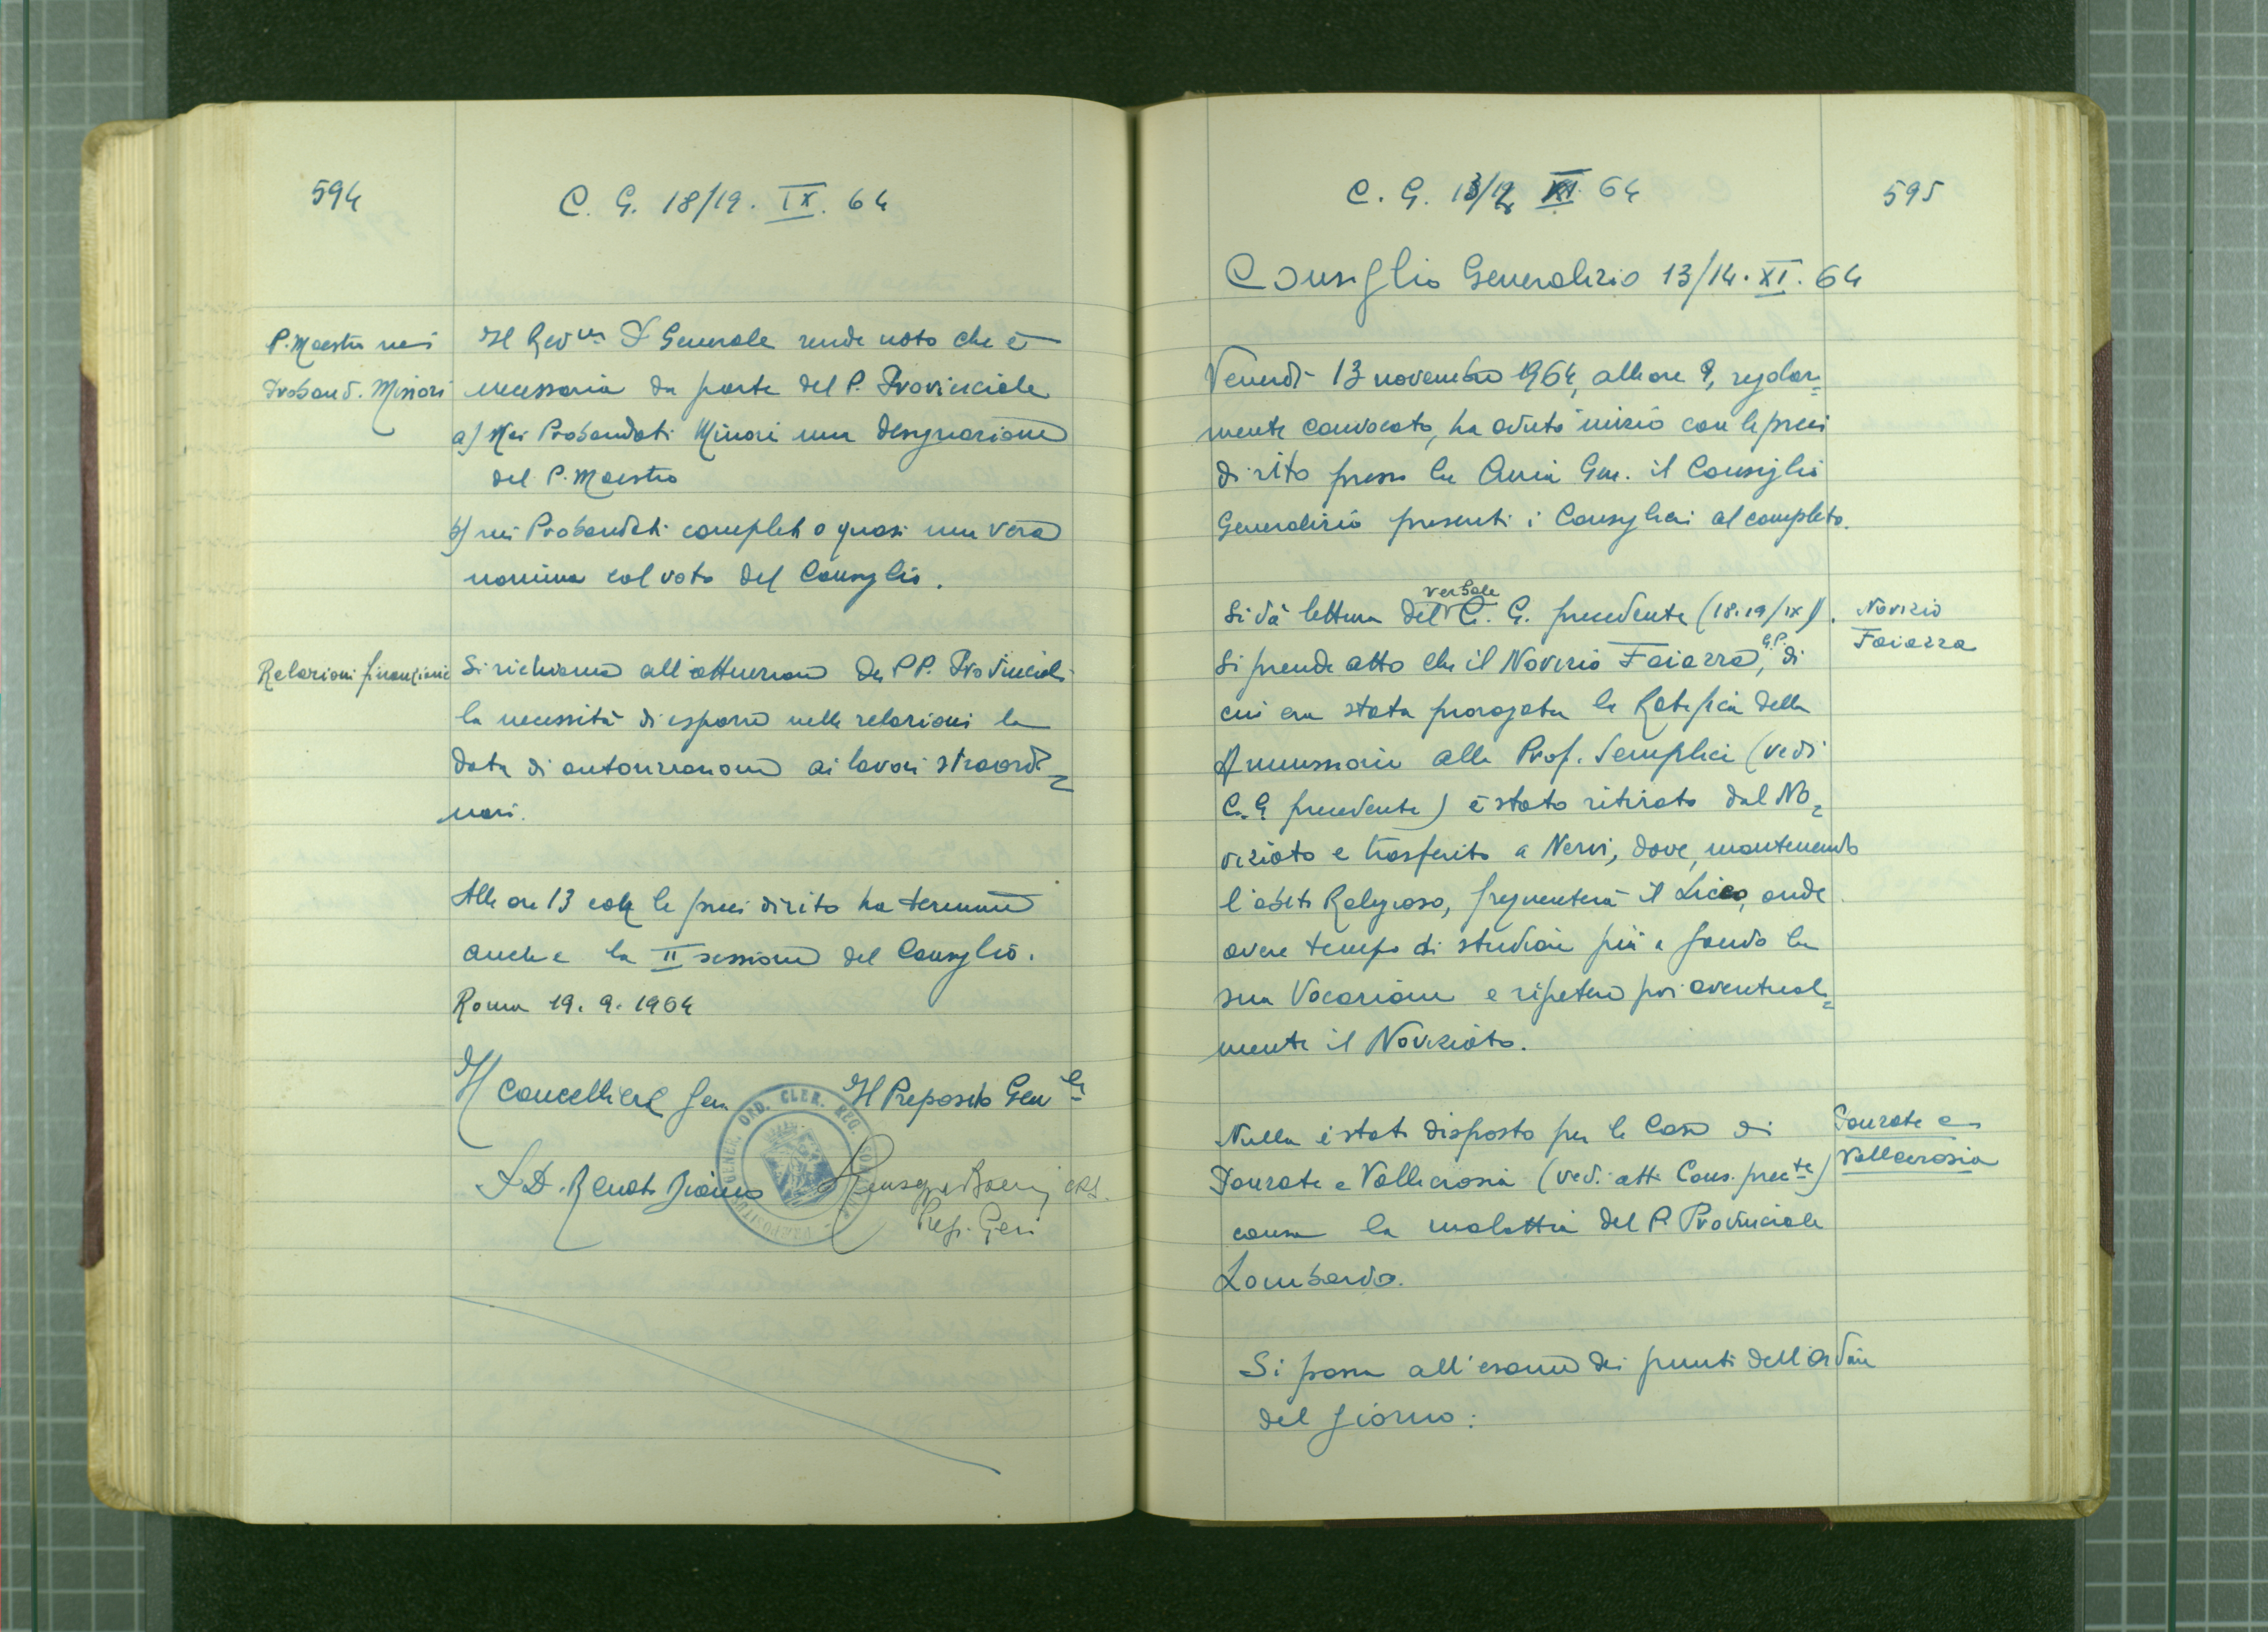 594
C. G. 18/19. IX. 64
P. Maestro nei
Proband. Minori
Il Rev.mo P. Generale rende noto che è
necessaria da parte del P. Provinciale
a) Nei Probandati Minori una designazione
del P. Maestro
b) nei Probandati completi o quasi una vera
nomina col voto del Consiglio.
Relazioni finanziarie
Si richiama all'attenzione dei PP. Provinciali
la necessità di esporre nelle relazioni la
data di autorizzazione ai lavori straordi=
nari.
Alle ore 13 colle preci di rito ha termine
anche la II sessione del Consiglio.
Roma 19. 9. 1964
Il Cancelliere Gen. Il Preposito Gen.le
P. D. Renato Bianco
CRS.
Prep. Gen
ORD. CLER. REG.
C. G. 13/14 XI 64
595
Consiglio Generalizio 13/14. XI. 64
Venerdì 13 novembre 1964, alle ore 9, regolar=
mente convocato, ha avuto inizio con le preci
di rito presso la Curia Gen. il Consiglio
Generalizio presenti i Consiglieri al completo.
Si dà lettura del verbale C. G. precedente (18.19/IX).
Novizio
Faiazza
Si prende atto che il Novizio Faiazza, G.P. di
cui era stata prorogata la Ratifica della
Ammissione alla Prof. Semplice (vedi
C. G. precedente) è stato ritirato dal No=
viziato e trasferito a Nervi, dove, mantenendo
l'abito Religioso, frequenterà il Liceo, onde
avere tempo di studiare più a fondo la
sua Vocazione e ripetere poi eventual=
mente il Noviziato.
Nulla è stato disposto per le Case di
Ponzate e
Vallecrosia
Ponzate e Vallecrosia (vedi atti Cons. prec.te)
causa la malattia del P. Provinciale
Lombardo.
Si passa all'esame dei punti dell'ordine
del giorno: